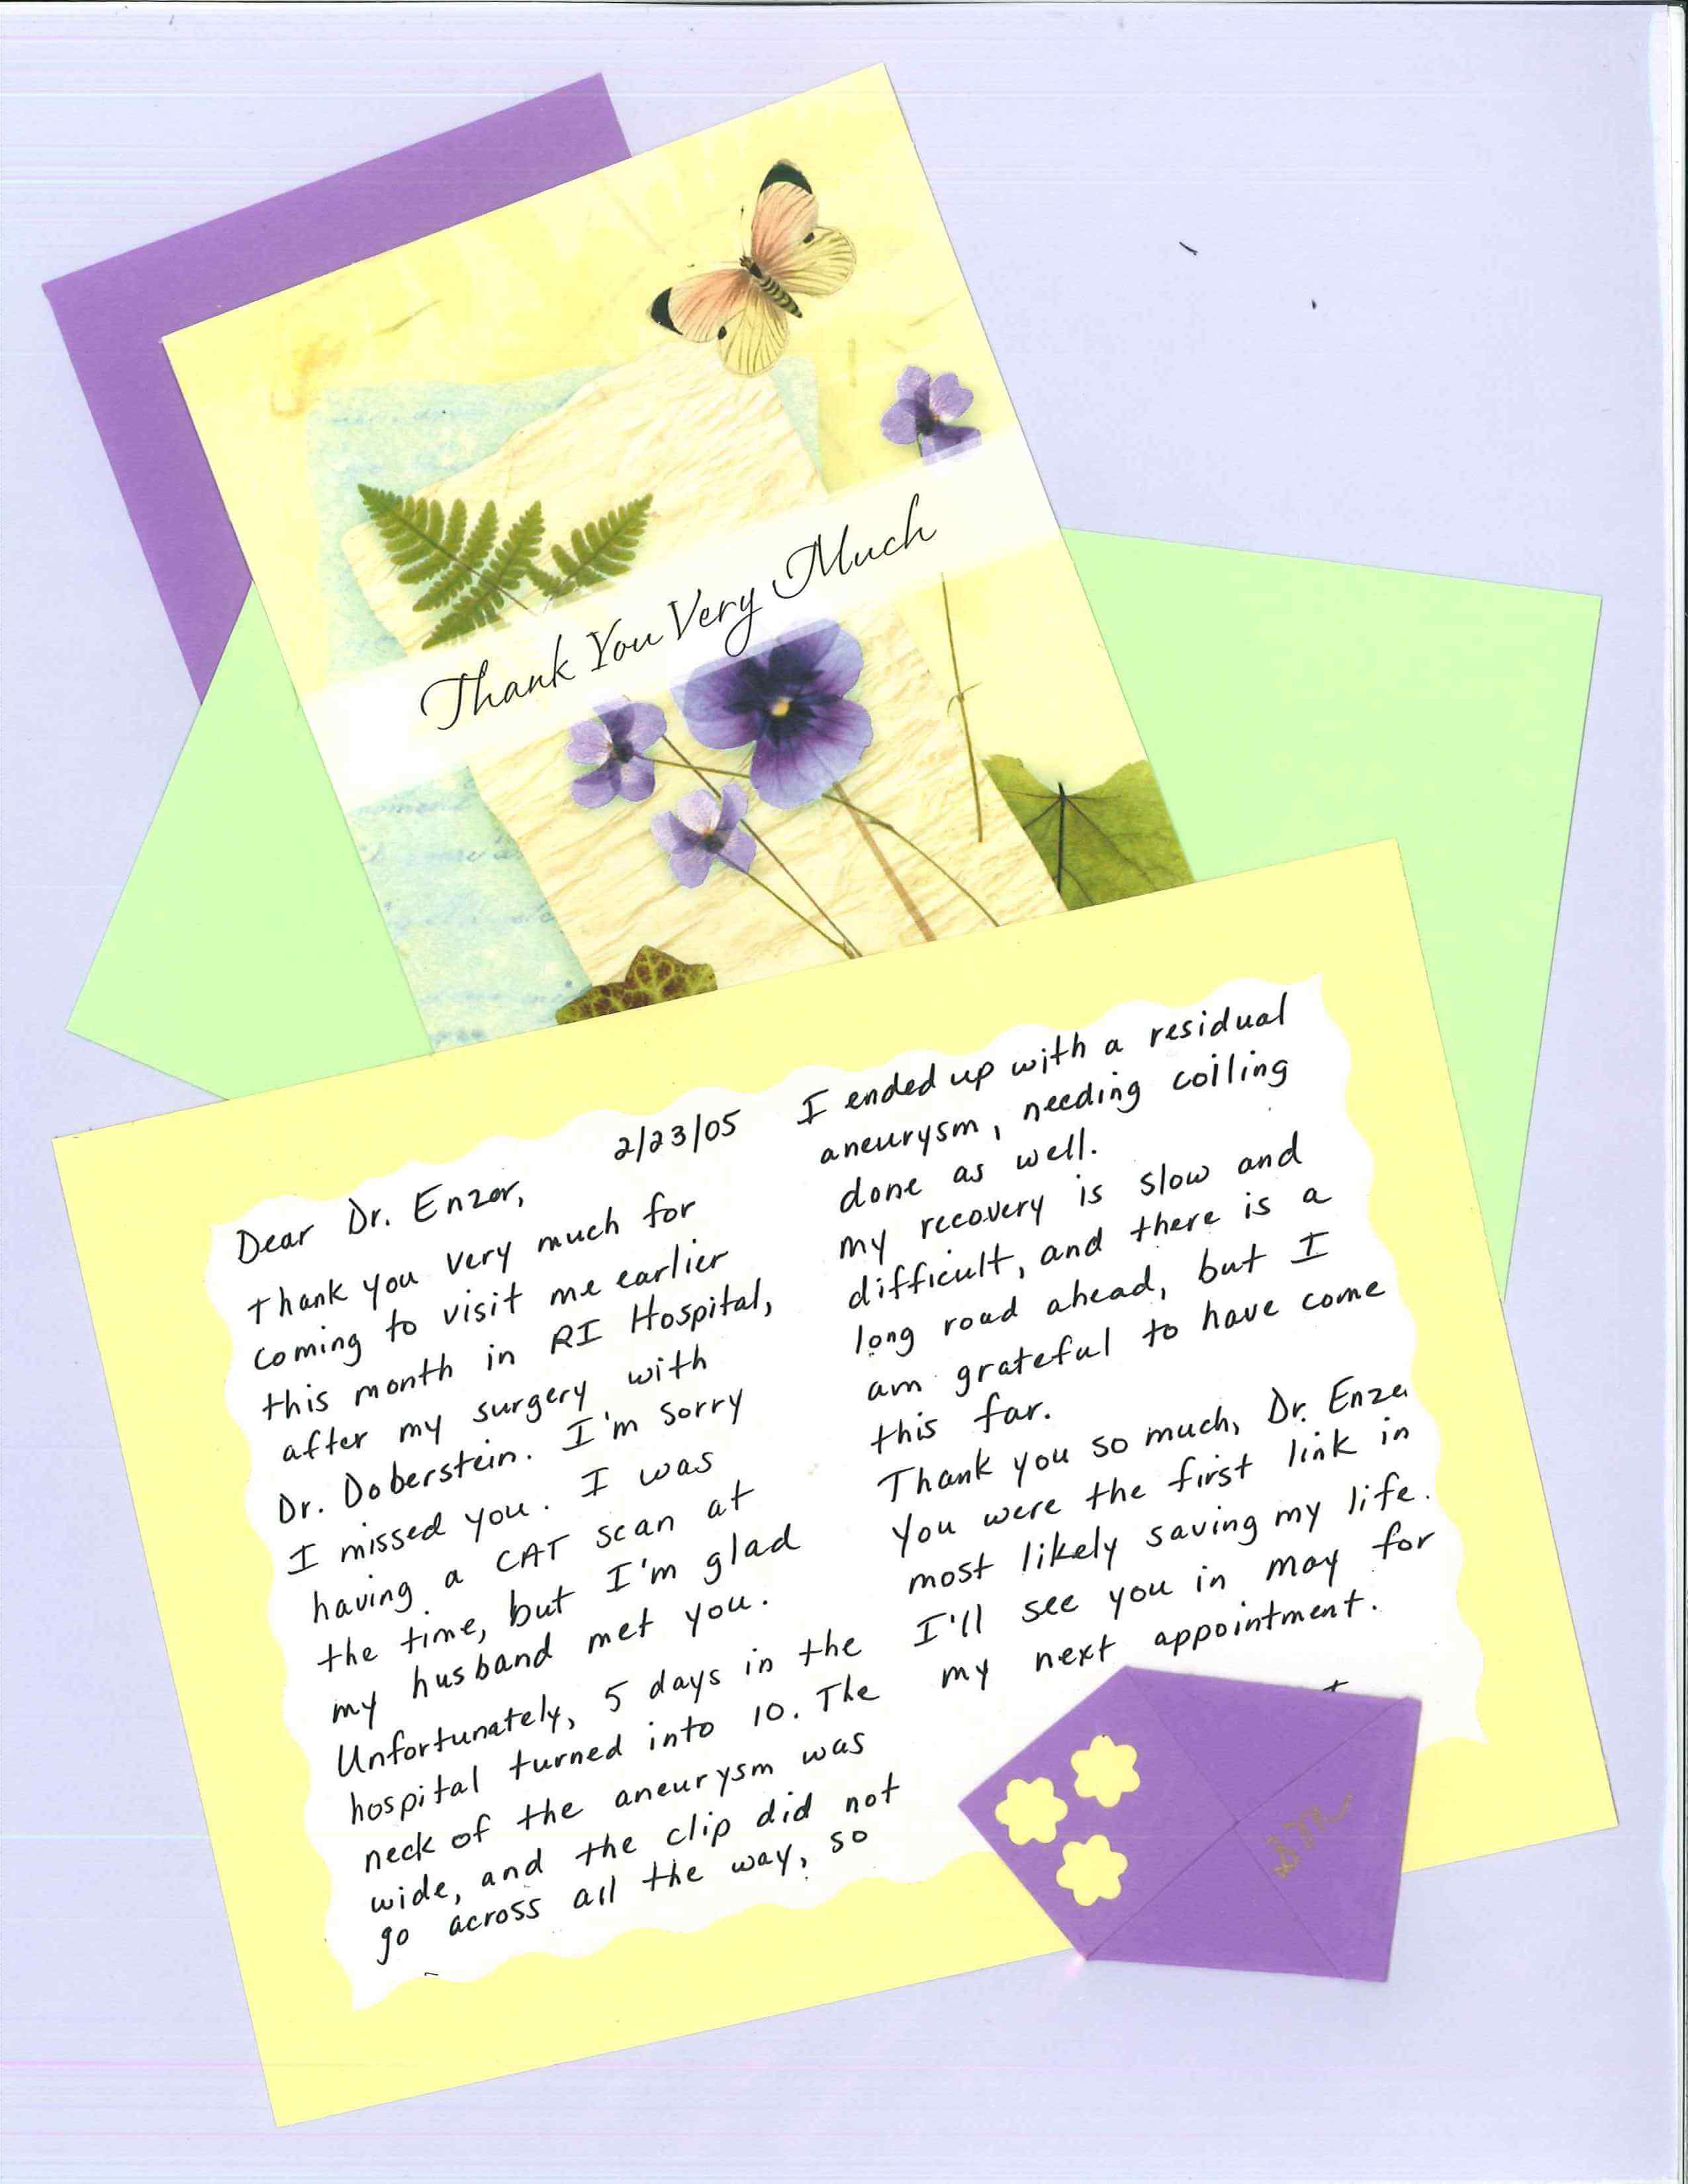 Thank You Very Much
2/23/05
Dear Dr. Enzer,
Thank you very much for
coming to visit me earlier
this month in RI Hospital,
after my surgery with
Dr. Doberstein. I'm sorry
I missed you. I was
having a CAT scan at
the time, but I'm glad
my husband met you.
Unfortunately, 5 days in the
hospital turned into 10. The
neck of the aneurysm was
wide, and the clip did not
go across all the way, so
I ended up with a residual
aneurysm, needing coiling
done as well.
my recovery is slow and
difficult, and there is a
long road ahead, but I
am grateful to have come
this far.
Thank you so much, Dr. Enze
You were the first link in
most likely saving my life.
I'll see you in may for
my next appointment.